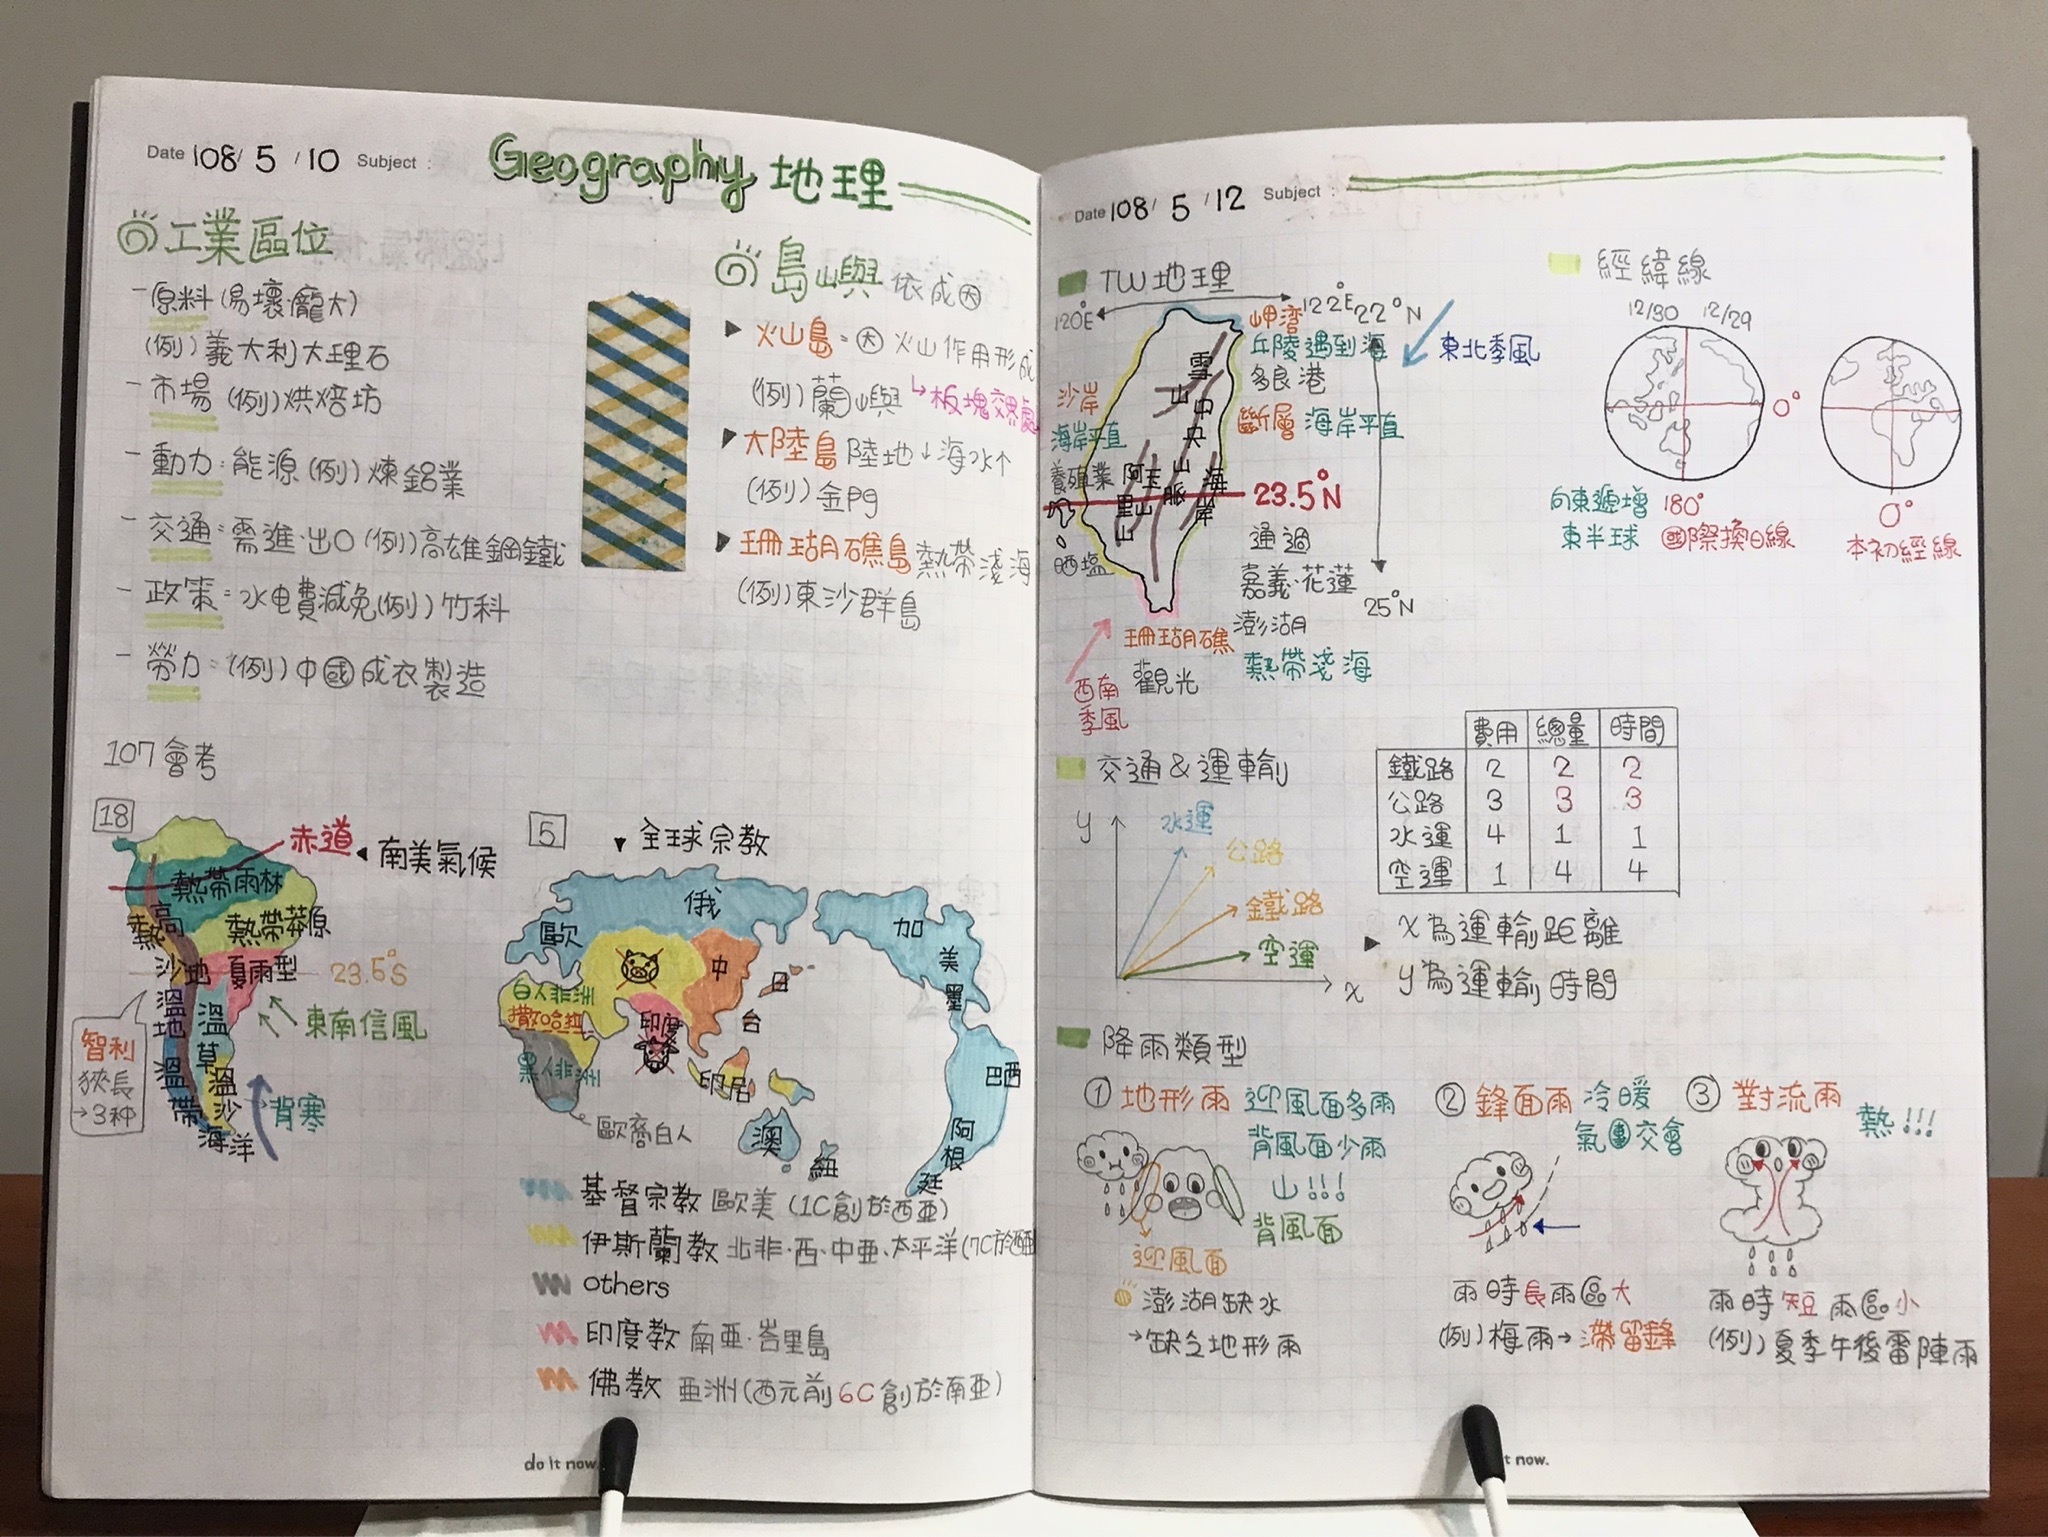 Date 108/ 5 /10 Subject :
Geography 地理
工業區位
- 原料 (易壞·龐大)
(例) 義大利大理石
- 市場 (例) 烘焙坊
- 動力: 能源 (例) 煉鋁業
- 交通: 需進·出口 (例) 高雄鋼鐵
- 政策: 水电費減免(例) 竹科
- 勞力: (例) 中國成衣製造
島嶼 依成因
▶ 火山島 = 因 火山作用形成
(例) 蘭嶼 ↳板塊交界處
▶ 大陸島 陸地↓海水↑
(例) 金門
▶ 珊瑚礁島 熱帶淺海
(例) 東沙群島
107會考
18
赤道
◀ 南美氣候
熱帶雨林
熱帶莽原
高
熱
沙地
夏雨型
23.5°S
東南信風
溫地
溫草
溫帶海洋
溫沙
背寒
智利
狹長
→3种
5
▼ 全球宗教
俄
歐
中
日
台
白人非洲
撒哈拉
黑人非洲
歐裔白人
印度
印尼
澳
紐
加
美
墨
巴西
阿根廷
基督宗教 歐美 (1C創於西亞)
伊斯蘭教 北非·西·中亞、太平洋(7C於西亞
others
印度教 南亞·峇里島
佛教 亞洲(西元前6C創於南亞)
do it now.
Date 108/ 5 /12 Subject :
TW地理
120°E
122°E
22°N
東北季風
岬灣
丘陵遇到海
多良港
斷層 海岸平直
沙岸
海岸平直
養殖業
晒塩
雪山
中央山脈
阿里山
玉山
海岸
23.5°N
通過
嘉義·花蓮
澎湖
25°N
珊瑚礁
熱帶淺海
觀光
西南
季風
經緯線
12/30 12/29
0°
向東遞增 180°
東半球 國際換日線
0°
本初經線
交通&運輸
y
水運
公路
鐵路
空運
x
費用 總量 時間
鐵路 2 2 2
公路 3 3 3
水運 4 1 1
空運 1 4 4
▶ x為運輸距離
y為運輸時間
降雨類型
① 地形雨 迎風面多雨
背風面少雨
山!!!
背風面
迎風面
澎湖缺水
→缺乏地形雨
② 鋒面雨 冷暖
氣團交會
雨時長雨區大
(例) 梅雨→滯留鋒
③ 對流雨 熱!!!
雨時短雨區小
(例) 夏季午後雷陣雨
t now.